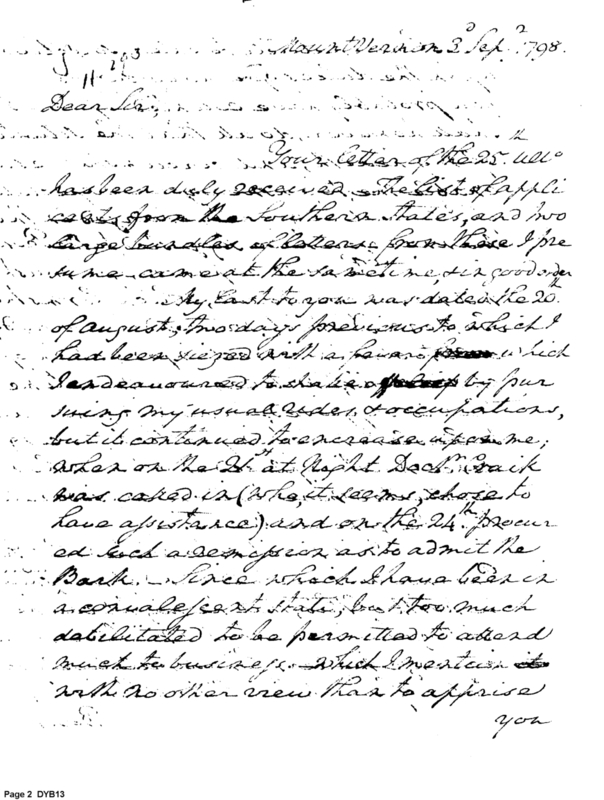 Mount Vernon 3d Sepr. 1798.
Dear Sir,
Your letter of the 25th Ulto
has been duly received. The list of appli
cants from the Southern States, and two
large bundles of letters from these I pre
sume came at the same time, & in good order
My last to you was dated the 20th
of August; two days previous to which I
had been siezed with a fever which
I endeavoured to shake off by pur
suing my usual rides & occupations,
but it continued to encrease upon me;
when on the 21st at Night Doctr. Craik
was called in (who, it seems, chose to
have assistance) and on the 24th procur
ed such a remission as to admit the
Bark. Since which I have been in
a convalescent state, but too much
debilitated to be permitted to attend
much to business. which I mention
with no other view than to apprise
you
Page 2 DYB13